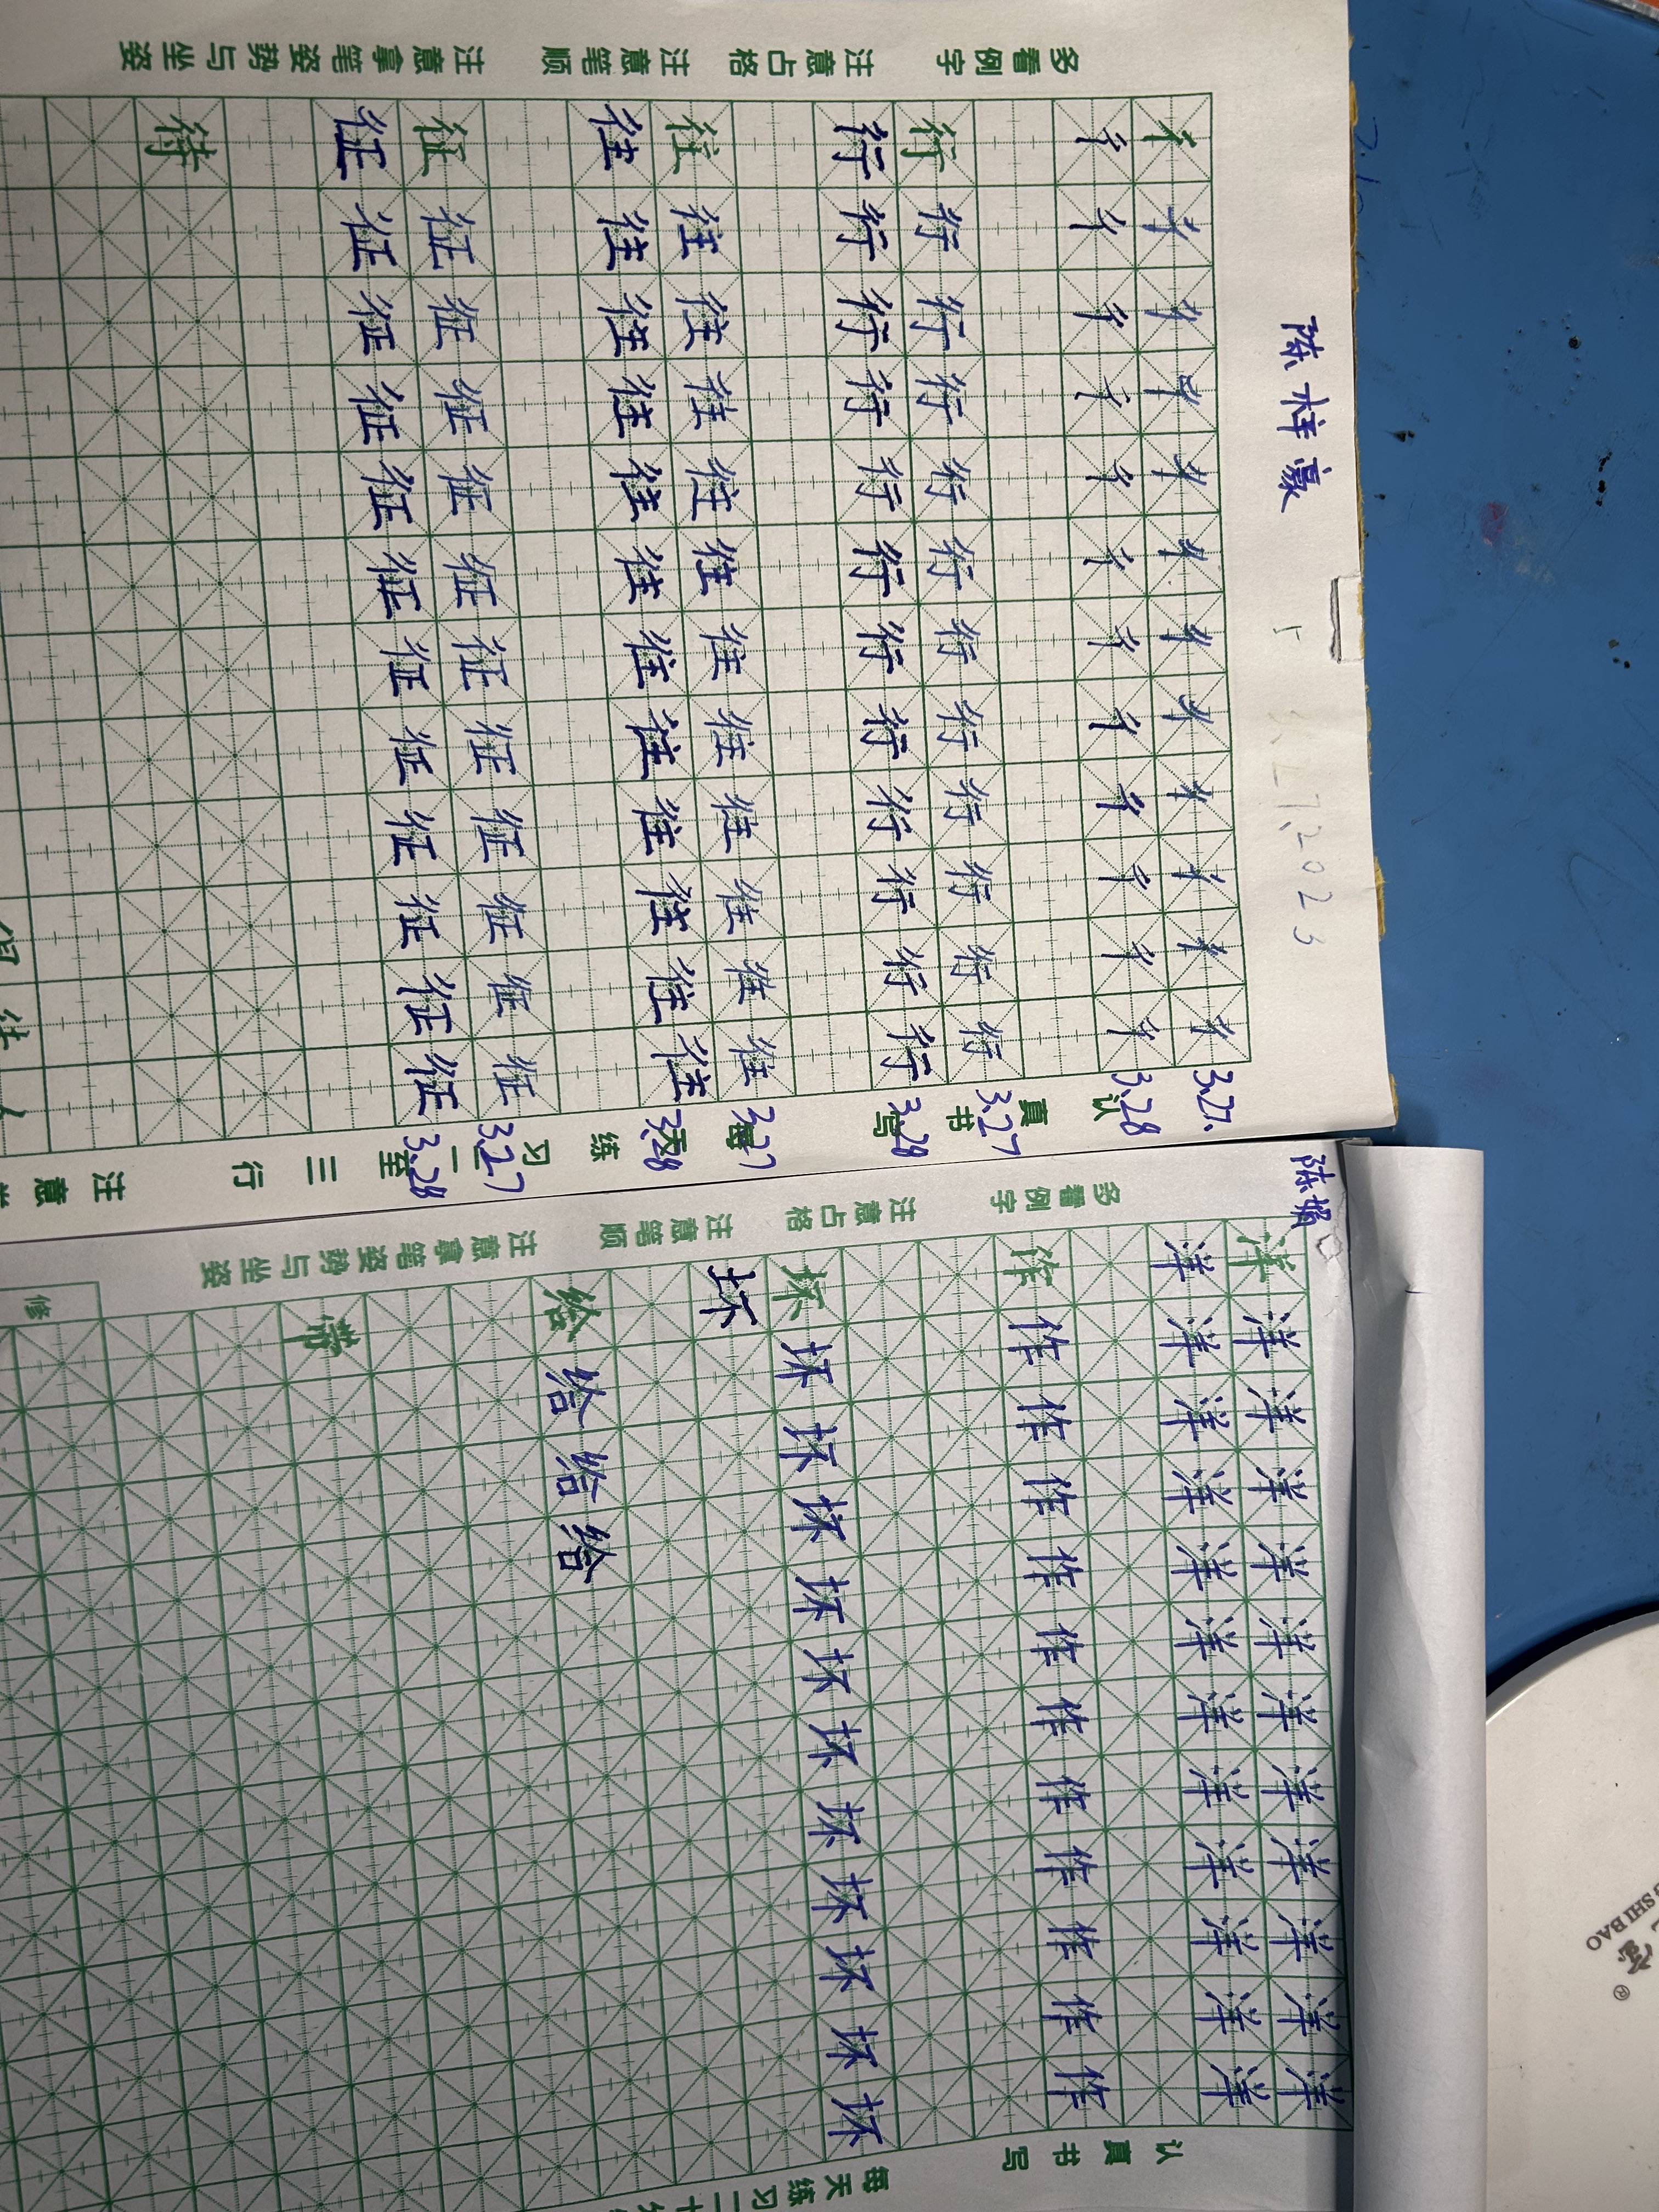 陈
3.27,2023
多看例字 注意占格 注意笔顺 注意拿笔姿势与坐姿
彳彳彳彳彳彳彳彳彳彳彳彳 3.27.
彳彳彳彳彳彳彳彳彳彳彳彳 3.28
行行行行行行行行行行行行 3.27
行行行行行行行行行行行行 3.28
往往往往往往往往往往往往 3.27
往往往往往往往往往往往往 3.28
征征征征征征征征征征征征 3.27
征征征征征征征征征征征征 3.28
待
认真书写 每天练习二至三行 注意
陈
多看例字 注意占格 注意笔顺 注意拿笔姿势与坐姿
洋洋洋洋洋洋洋洋洋洋洋洋
洋洋洋洋洋洋洋洋洋洋洋洋
作作作作作作作作作作作作
坏坏坏坏坏坏坏坏坏坏坏坏
坏
给给给给
修
认真书写 每天练习二十
SHI BAO